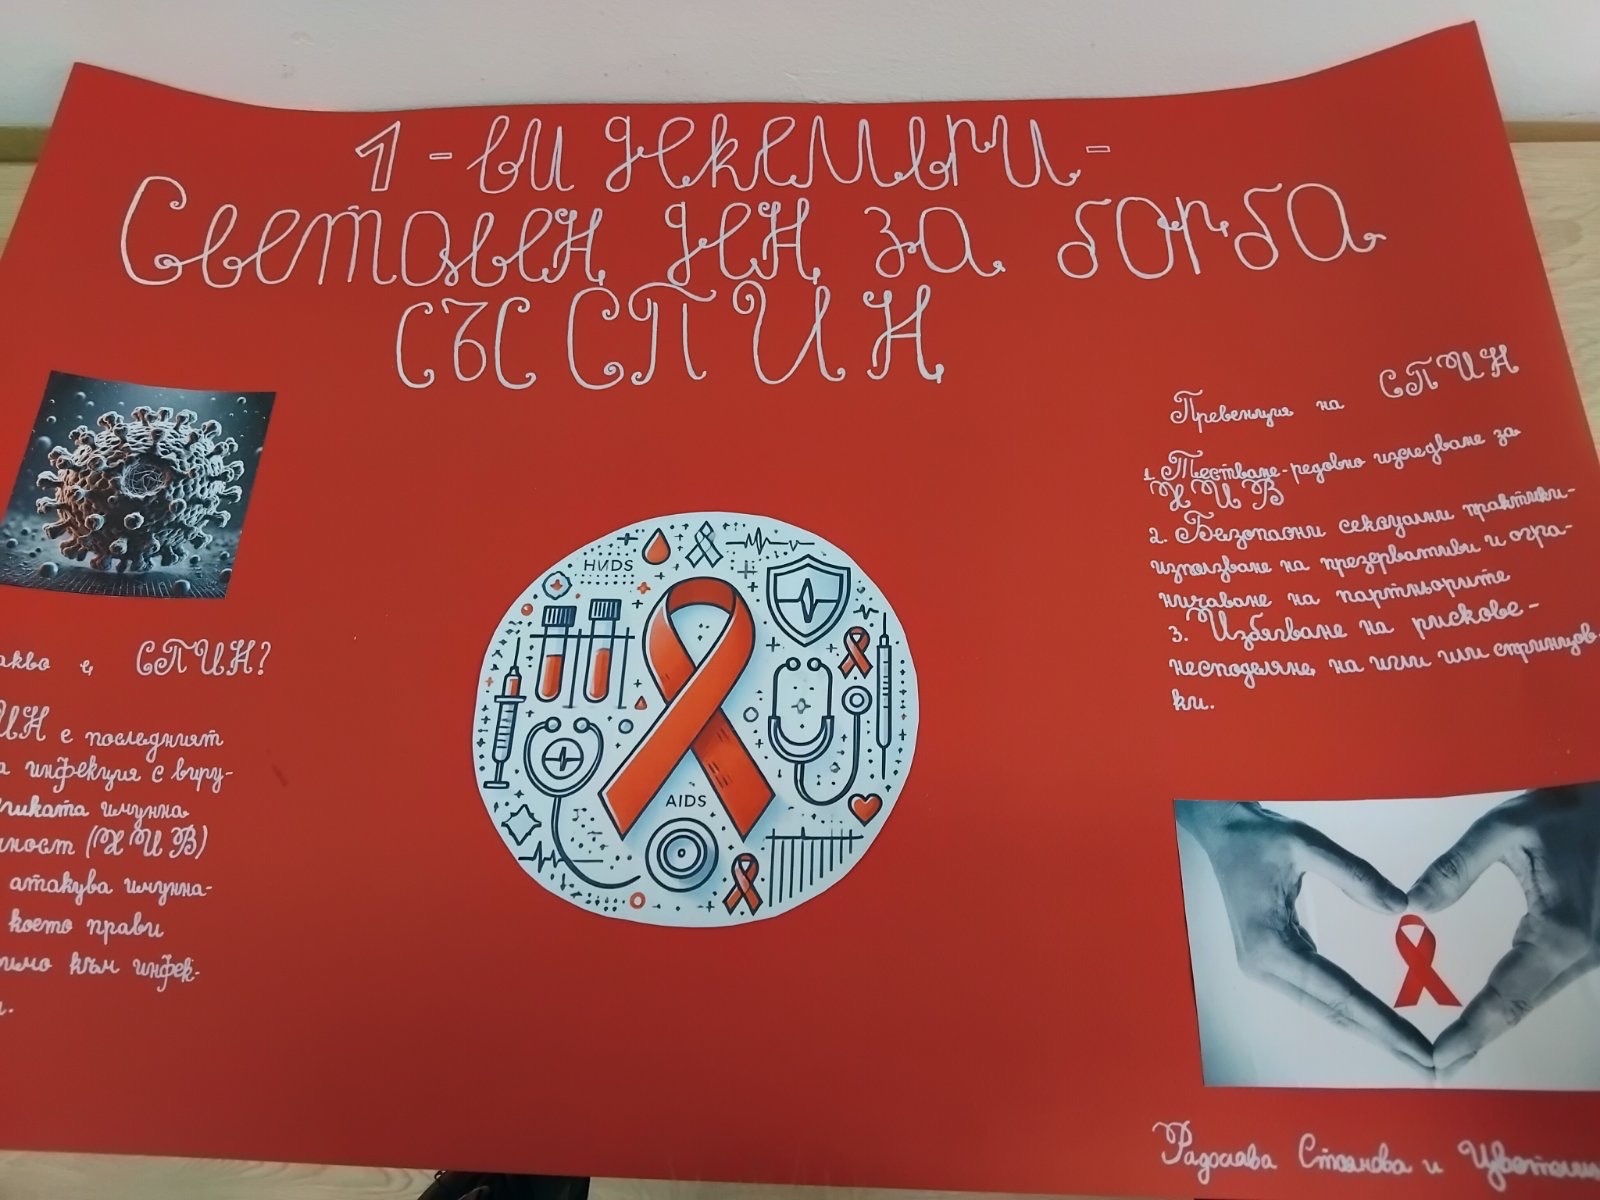 1-ви декември-
Световен ден за борба
със СПИН
Какво е СПИН?
СПИН е последният
а инфекция с виру-
имунна
ност (ХИВ)
атакува имунна-
което прави
имо към инфек-
HVDS
AIDS
Превенция на СПИН
1. Тестване-редовно изследване за
ХИВ
2. Безопасни сексуални практики-
използване на презервативи и огра-
ничаване на партньорите
3. Избягване на рискове-
несподеляне на игли или спринцов-
ки.
Радослава Стоянова и